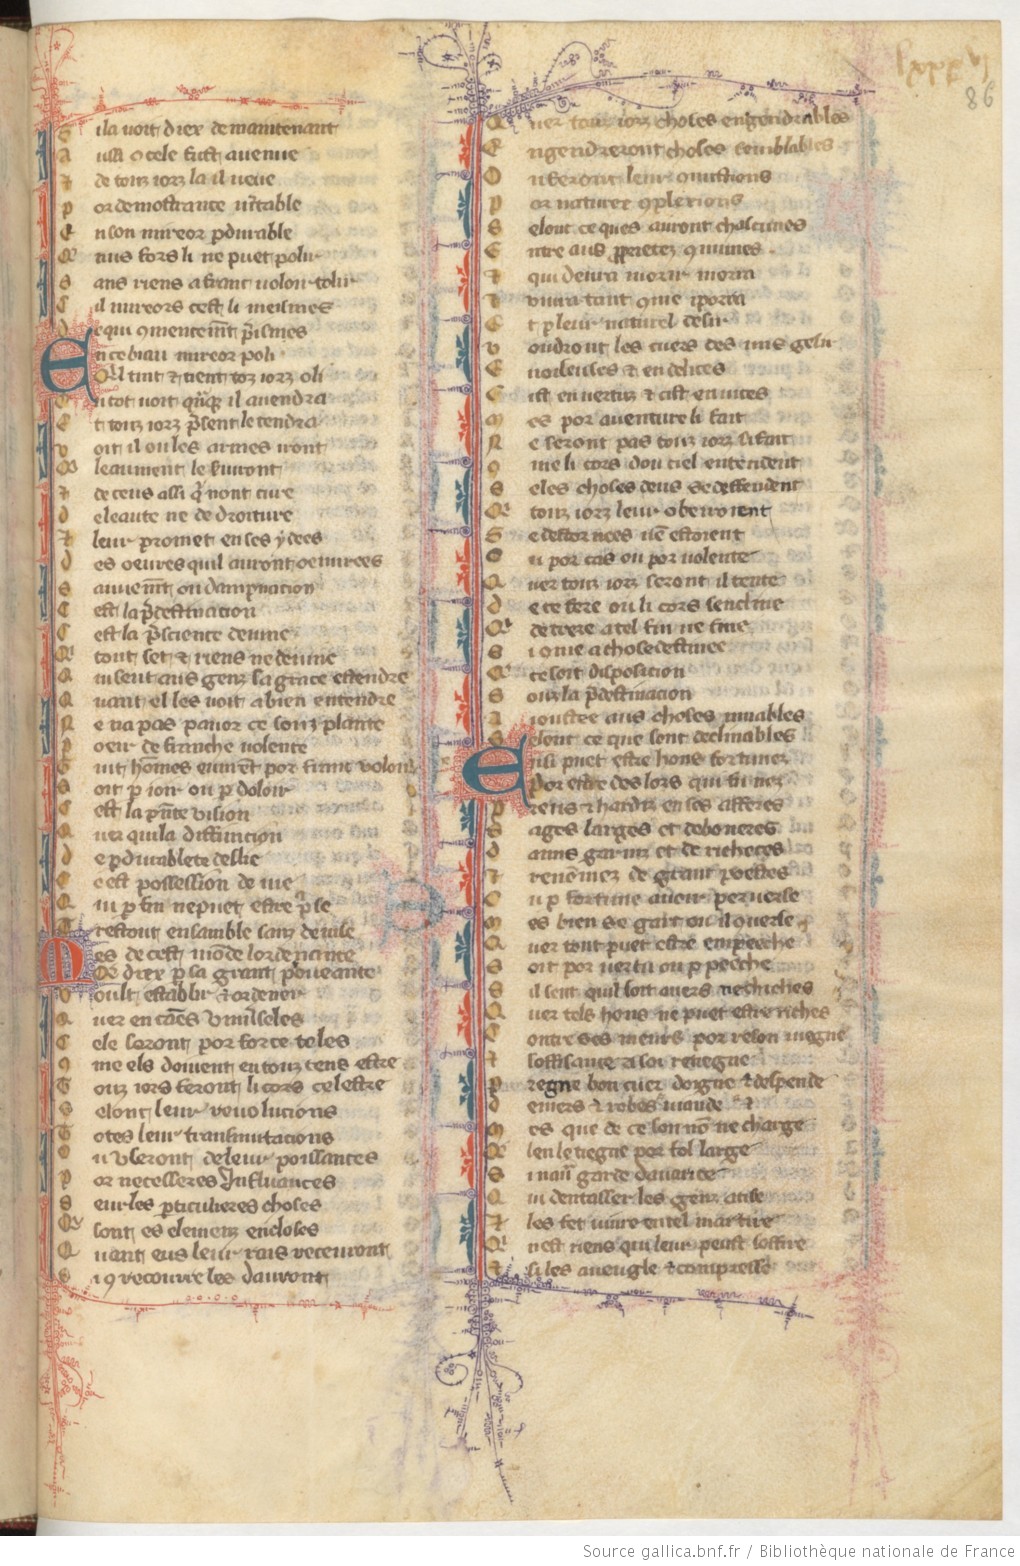 lxxxvj
86
S il a voit diex de maintenant
A ussi o cele fust avenue
& de touz iorz la il veue
p or demostrance veritable
E n son mireor pdurable
Q nus fors li ne puet polir
S ans riens a franc voloir tolir
C il mireors cest li meismes
D equi 9mencement preismes
E n ce biau mireor poli
Q il tint & tient toz iorz o li
O u tot voit qnque il avendra
E t touz iorz psent le tendra
v oit il ou les ames iront
Q leaument le serviront
& de ceus assi q nont cure
d e leaute ne de droiture
& leur promet en ses ydees
d es oevres quil auront oevrees
S auvement ou dampnacion
C est la pdestinacion
C est la pscience devine
Q tout set & riens ne devine
Q ui seut aus genz sa grace estendre
Q uant el les voit a bien entendre
N e na pas pauor ce souz plante
p oeir de franche volente
T uit homes euvrent por franc voloir
S oit p ioir ou p doloir
C est la pnte vision
Q uer qui la diffinicion
d e pdurablete deslie
C e est possession de vie
Q ui p fin ne puet estre pse
T restout ensamble sanz devise
M es de cest monde lordenance
Q diex p sa grant pveance
V oult establir & ordener
Q uer en causes vniverseles
C ele seront por force teles
9 me els doivent en touz tens estre
T ouz iors feront li cors celestre
S elonc leur revolucions
T otes leur transmutacions
O u useront de leur poissances
p or necesseres influances
S eur les pticulieres choses
Q sont es elemenz encloses
Q uant eus leur rais recevront
S i 9 recouvre les davront
Q uer touz iorz choses engendrables
E ngendreront choses semblables
O u feront leur 9mistions
p or natures 9plexions
S elonc ce ques auront chascunes
E ntre aus ppretez 9munes
& qui devra morir morra
& vivra tant 9me i porra
E t p leur naturel desir
v oudront les cuers des uns gesir
E n oiseuses & en delices
C ist en vertuz & cist en vices
M es por aventure li fait
N e seront pas touz iors si fait
9 me li cors dou ciel entendent
S e les choses deus se deffendent
Q touz iorz leur obeiroient
S e destornees nen estoient
O u por cas ou por volente
Q uer touz iorz seront il tente
d e ce fere ou li cors sencline
Q de trere a tel fin ne fine
S i 9me a chose destinee
Q ce soit disposicion
S ouz la pdestinacion
A ioustee aus choses muables
S elonc ce que sont declinables
E nsi puet estre hons fortunez
p or estre des lors qui fu nez
p reus & hardiz en ses afferes
S ages larges et deboneres
d amis garniz et de richeces
& renomez de granz proesces
O u p fortune avoir perverse
M es bien se gart ou il converse
Q uer tout puet estre empeeche
S oit por vertu ou p peeche
S il sent quil soit avers ne chiches
Q uer tels hons ne puet estre riches
C ontre ses meurs por reson viegne
& soffisance a soi retiegne
p regne bon cuer doigne & despende
d eniers & robes viande &
M es que de ce son non ne charge
Q len le tiegne por fol large
S i naura garde davarice
Q ui dentasser les genz atise
& les fet vivre en tel martire
Q nest riens qui leur peust soffire
& si les aveugle & compresse
Source gallica.bnf.fr / Bibliothèque nationale de France